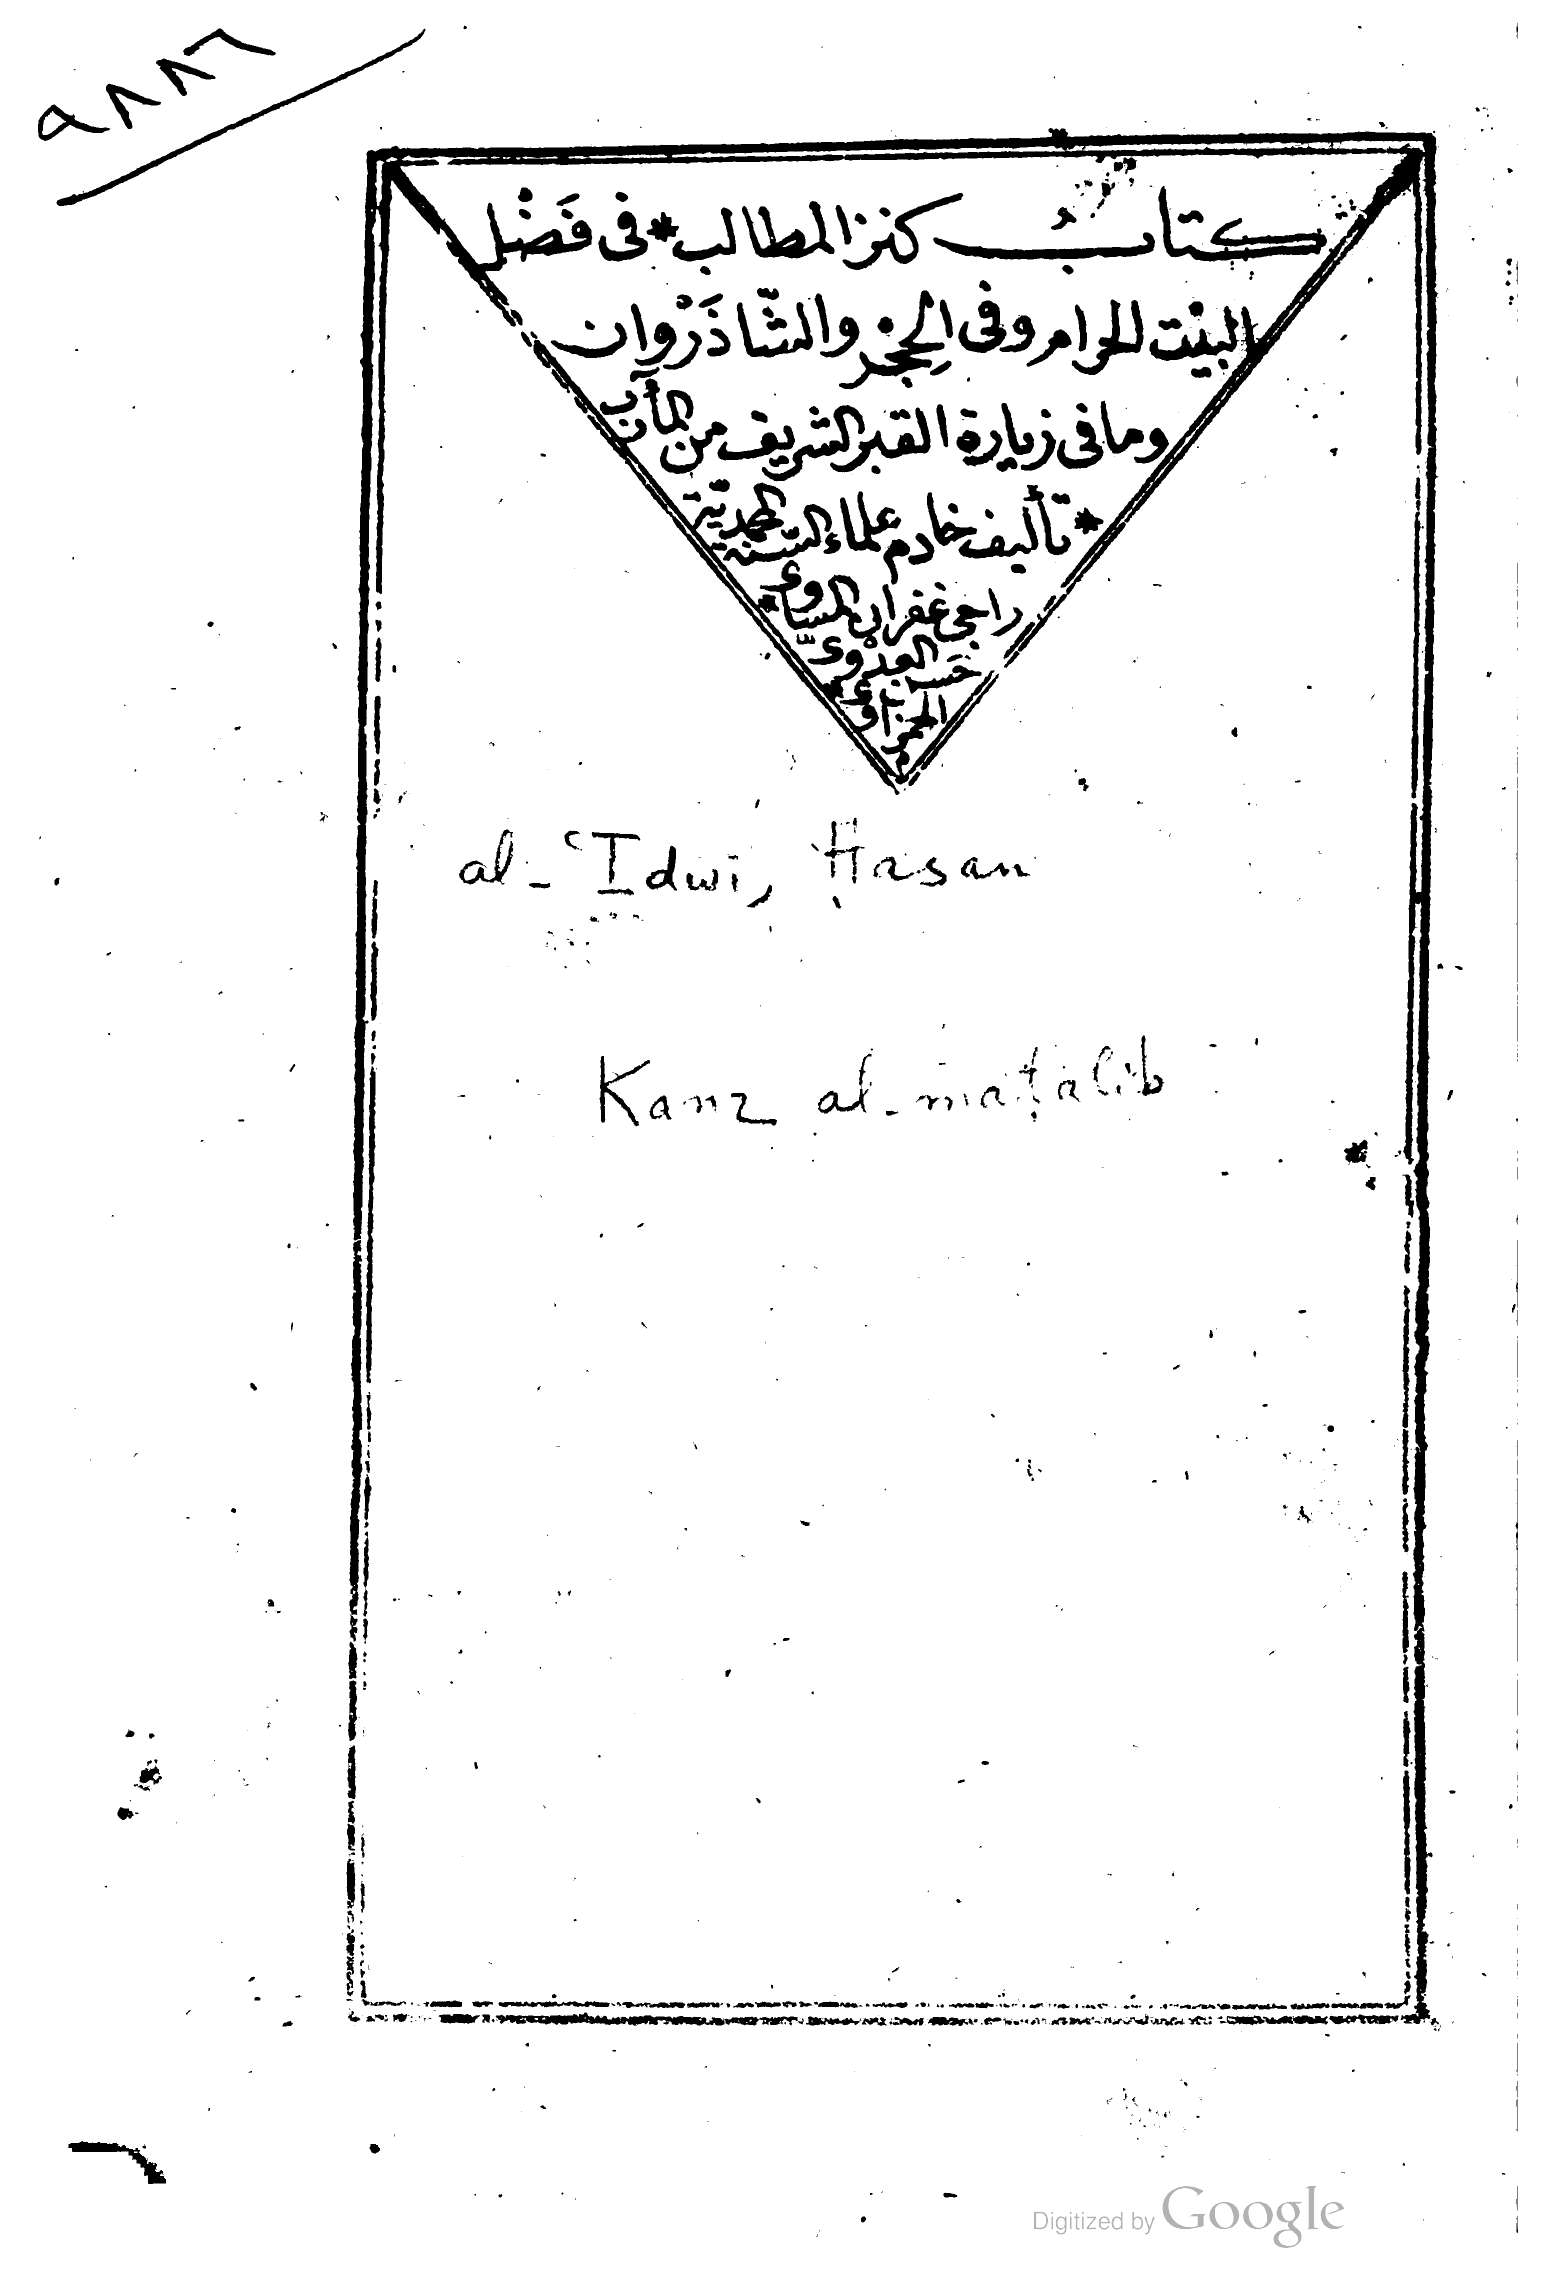 ٩٨٨٦
كتابُ كنز المطالب * فى فَضْل
البيْت الحرام وفى الحِجْر والشّاذَرْوان
وما فى زيارة القبر الشريف من المآرب
* تأليف خادم علماء السّنة المحمديّة
راجى غفران المساوى *
حَسن العِدْوىّ
الحمزاوى *
م
al-ʿIdwi, Ḥasan
Kanz al-maṭalib
Digitized by Google